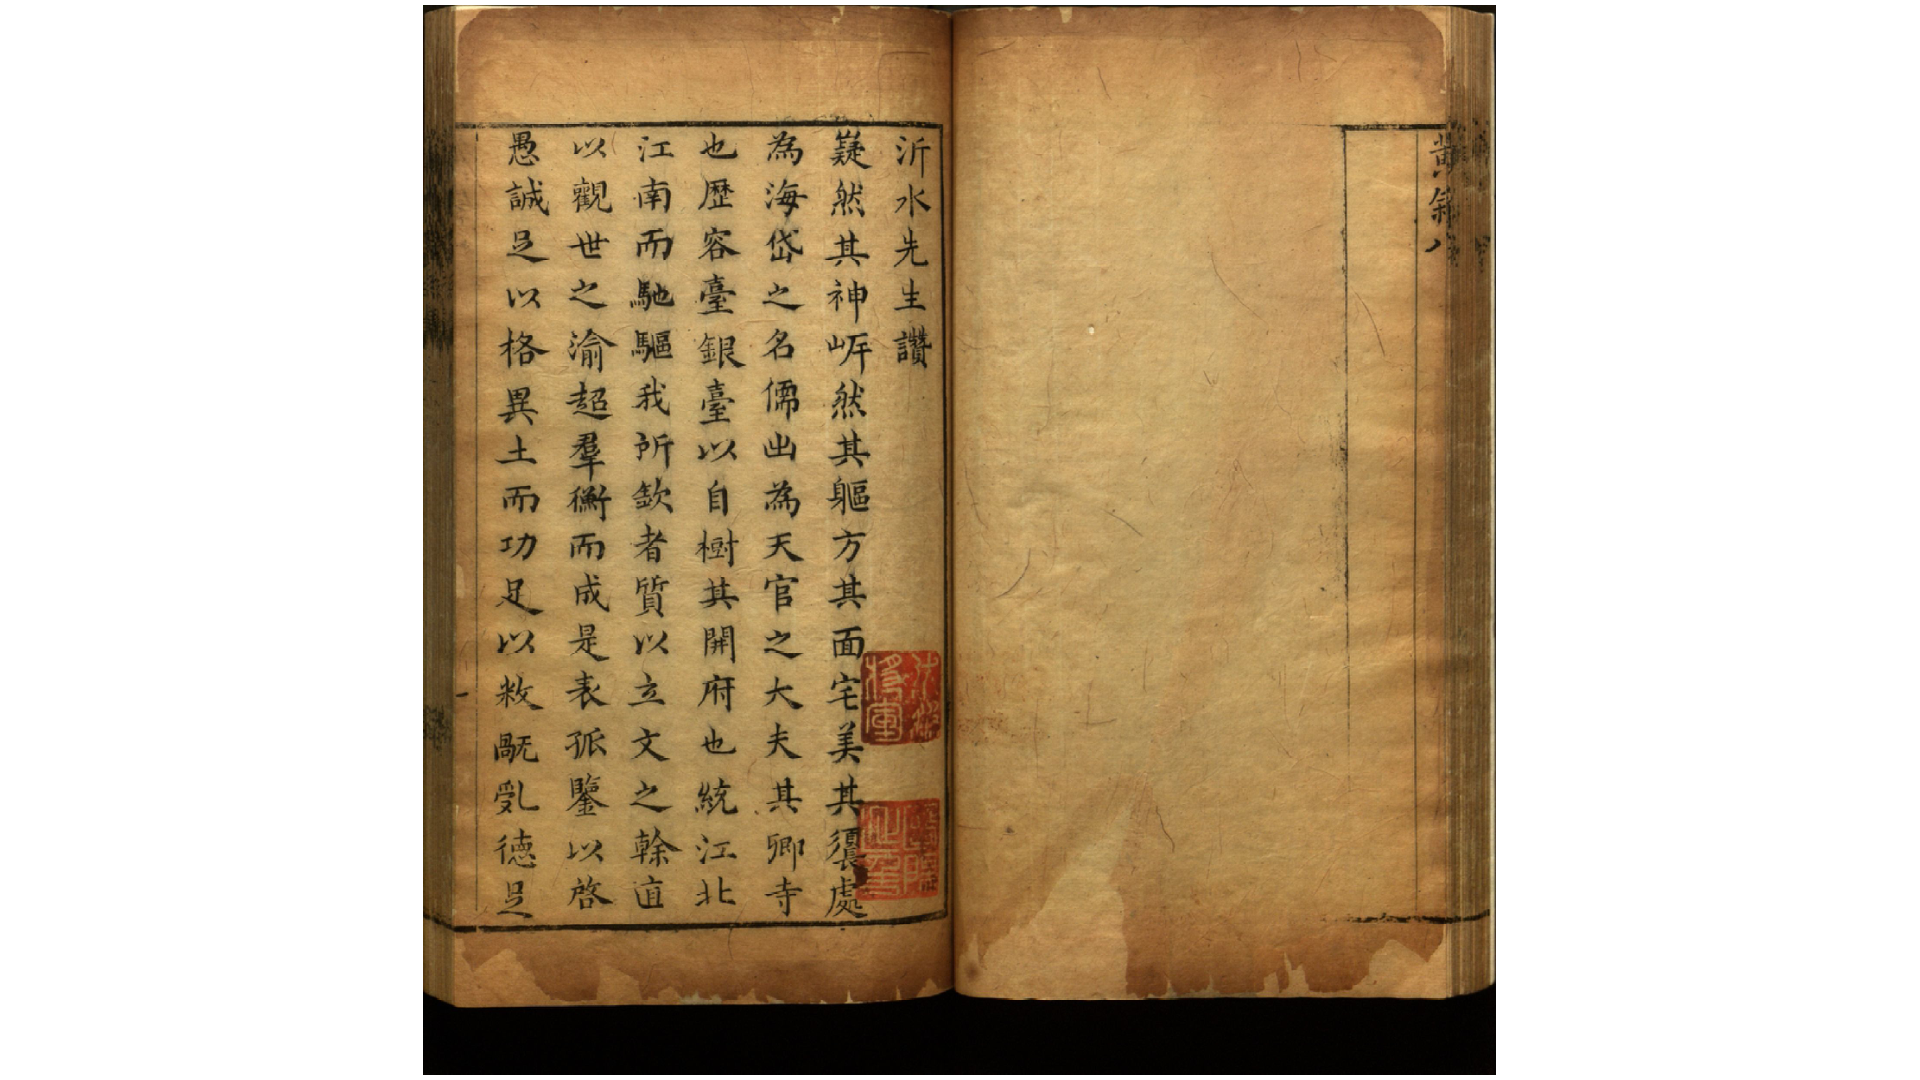 黄叙八
沂水先生讚
嶷然其神岍然其軀方其面宅美其鬚處
為海岱之名儒出為天官之大夫其卿寺
也歷容臺銀臺以自樹其開府也統江北
江南而馳驅我所欽者質以立文之榦直
以觀世之渝超羣衡而成是表孤鑒以啓
愚誠足以格異土而功足以救厩亂德足
將軍